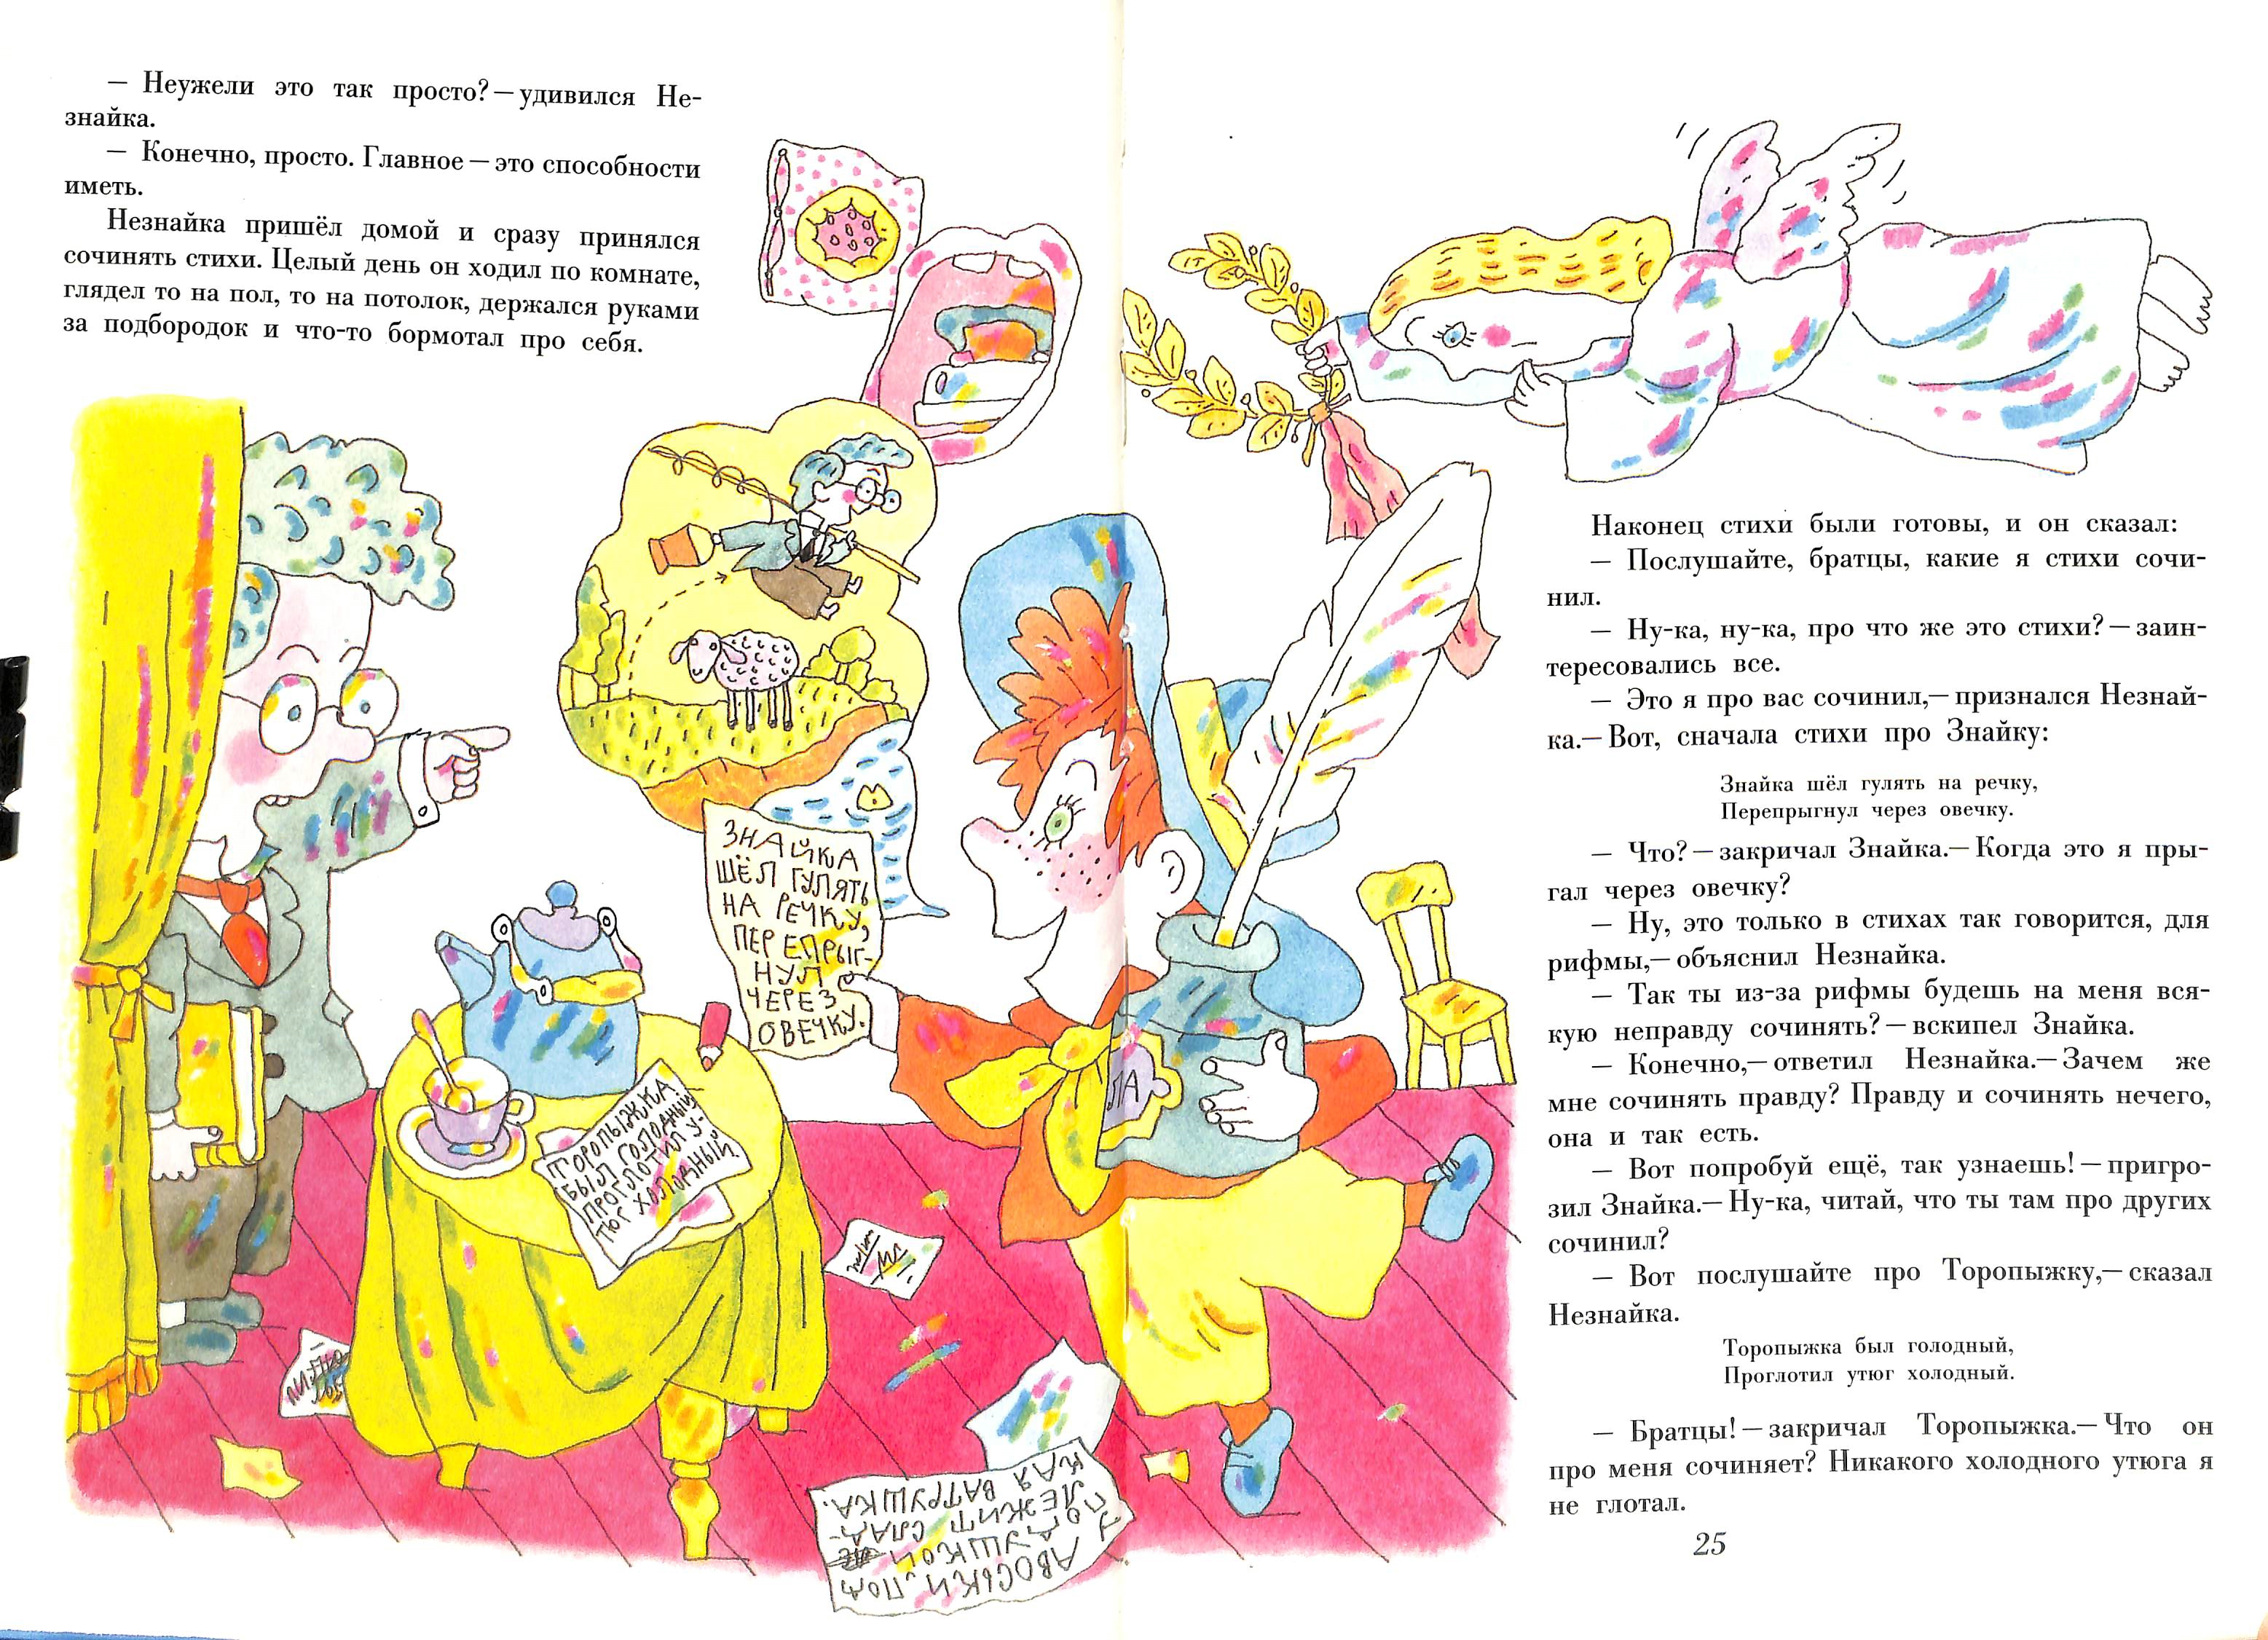 — Неужели это так просто?—удивился Не-
знайка.
— Конечно, просто. Главное—это способности
иметь.
Незнайка пришёл домой и сразу принялся
сочинять стихи. Целый день он ходил по комнате,
глядел то на пол, то на потолок, держался руками
за подбородок и что-то бормотал про себя.
ЗНАЙКА
ШЁЛ ГУЛЯТЬ
НА РЕЧКУ,
ПЕРЕПРЫГ-
НУЛ
ЧЕРЕЗ
ОВЕЧКУ.
ТОРОПЫЖКА
БЫЛ ГОЛОДНЫЙ
ПРОГЛОТИЛ У-
ТЮГ ХОЛОДНЫЙ.
ЛА
У АВОСЬКИ ПОД
ПОДУШКОЙ
ЛЕЖИТ СЛАД-
КАЯ ВАТРУШКА.
Наконец стихи были готовы, и он сказал:
— Послушайте, братцы, какие я стихи сочи-
нил.
— Ну-ка, ну-ка, про что же это стихи?—заин-
тересовались все.
— Это я про вас сочинил,—признался Незнай-
ка.—Вот, сначала стихи про Знайку:
Знайка шёл гулять на речку,
Перепрыгнул через овечку.
— Что?—закричал Знайка.—Когда это я пры-
гал через овечку?
— Ну, это только в стихах так говорится, для
рифмы,—объяснил Незнайка.
— Так ты из-за рифмы будешь на меня вся-
кую неправду сочинять?—вскипел Знайка.
— Конечно,—ответил Незнайка.—Зачем же
мне сочинять правду? Правду и сочинять нечего,
она и так есть.
— Вот попробуй ещё, так узнаешь!—пригро-
зил Знайка.—Ну-ка, читай, что ты там про других
сочинил?
— Вот послушайте про Торопыжку,—сказал
Незнайка.
Торопыжка был голодный,
Проглотил утюг холодный.
— Братцы!—закричал Торопыжка.—Что он
про меня сочиняет? Никакого холодного утюга я
не глотал.
25